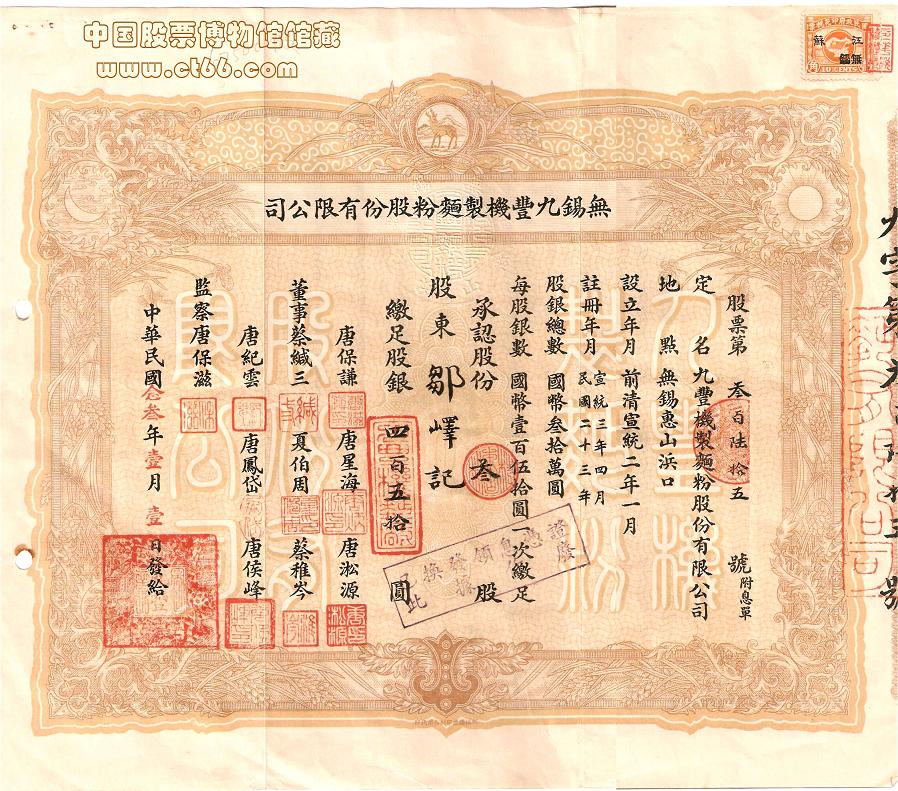 中国股票博物馆馆藏
www.ct66.com
江蘇
無錫
無錫九豐機製麵粉股份有限公司
股票第 叁百陸拾五 號 附息單
定名 九豐機製麵粉股份有限公司
地點 無錫惠山浜口
設立年月 前清宣統二年一月
註冊年月 宣統三年四月
民國二十三年
股銀總數 國幣叁拾萬圓
每股銀數 國幣壹百伍拾圓一次繳足
承認股份 叁 股
股東 鄒嶧記
繳足股銀 四百五拾 圓
唐保謙 唐星海 唐淞源
董事蔡緘三 夏伯周 蔡稚岑
唐紀雲 唐鳳岱 唐侯峰
監察唐保滋
中華民國念叁年壹月壹日發給